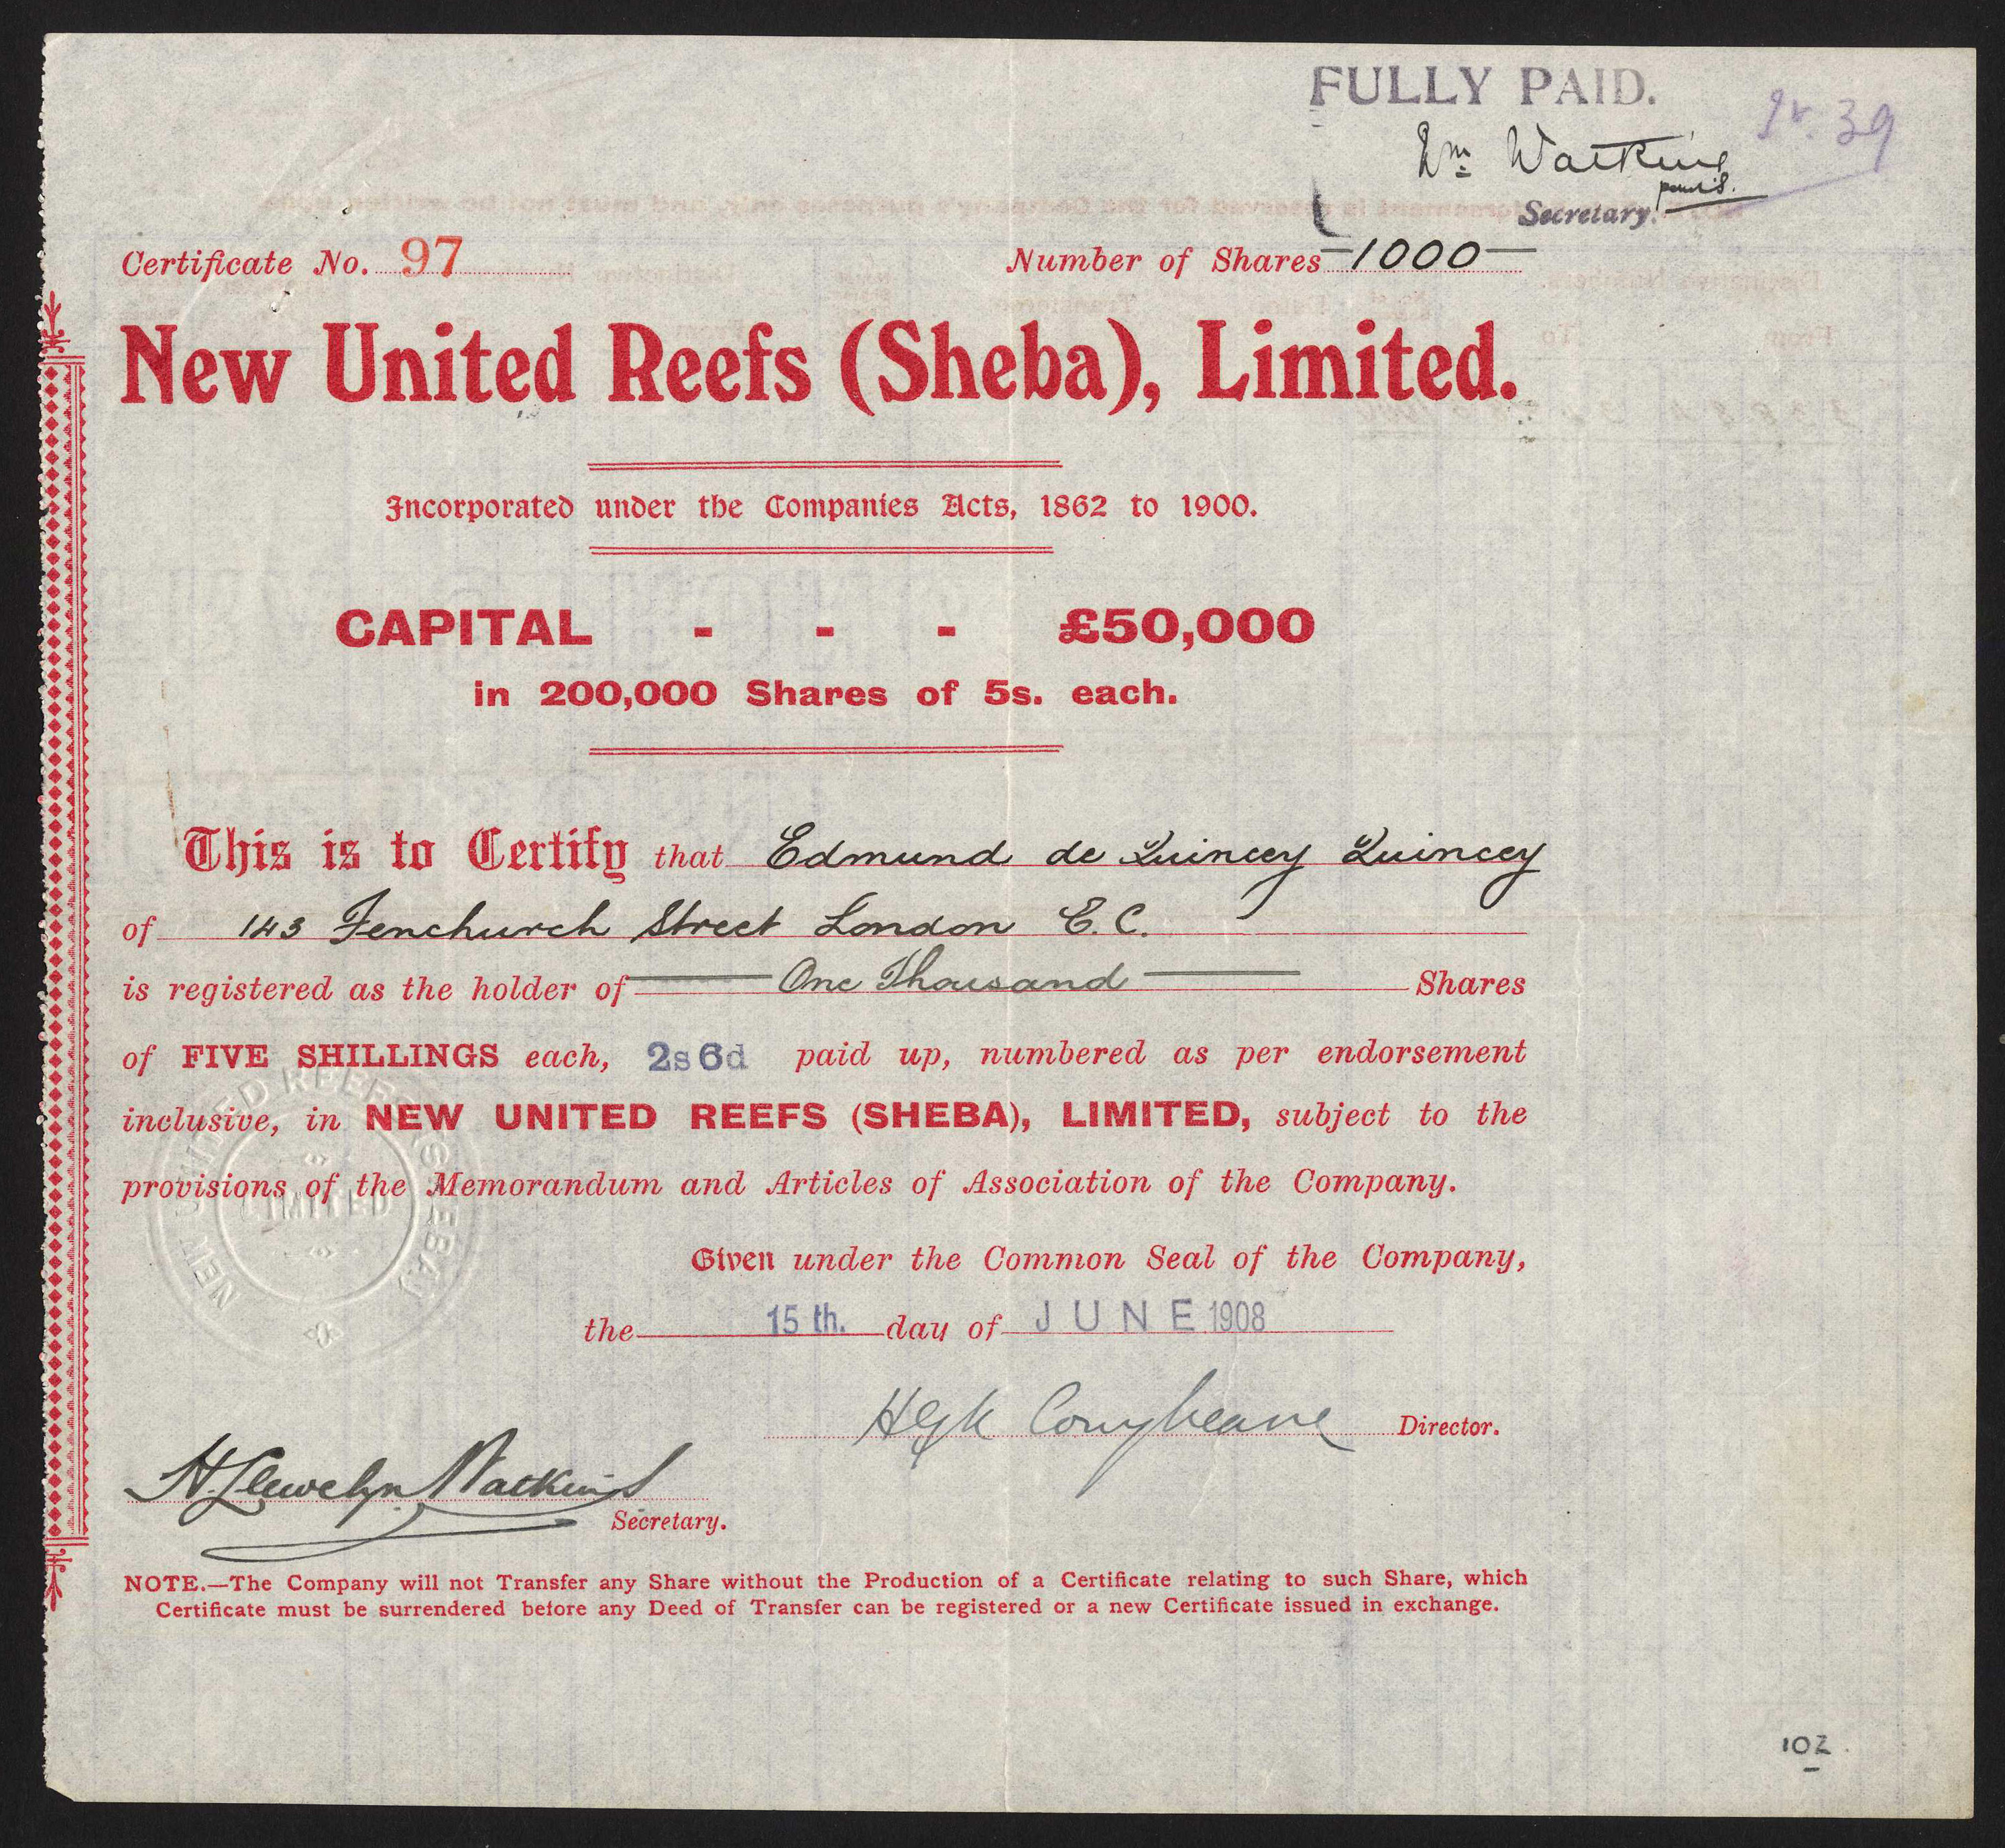 FULLY PAID.
Wm Watkins
Secretary.
39
Certificate No. 97
Number of Shares 1000
New United Reefs (Sheba), Limited.
Incorporated under the Companies Acts, 1862 to 1900.
CAPITAL - - - £50,000
in 200,000 Shares of 5s. each.
This is to Certify that Edmund de Quincey Quincey
of 143 Fenchurch Street London E.C.
is registered as the holder of One Thousand Shares
of FIVE SHILLINGS each, 2s 6d paid up, numbered as per endorsement
inclusive, in NEW UNITED REEFS (SHEBA), LIMITED, subject to the
provisions of the Memorandum and Articles of Association of the Company.
NEW UNITED REEFS (SHEBA)
LIMITED
Given under the Common Seal of the Company,
the 15th. day of JUNE 1908
Conybeare Director.
H. Llewelyn Watkins
Secretary.
NOTE.—The Company will not Transfer any Share without the Production of a Certificate relating to such Share, which
Certificate must be surrendered before any Deed of Transfer can be registered or a new Certificate issued in exchange.
102